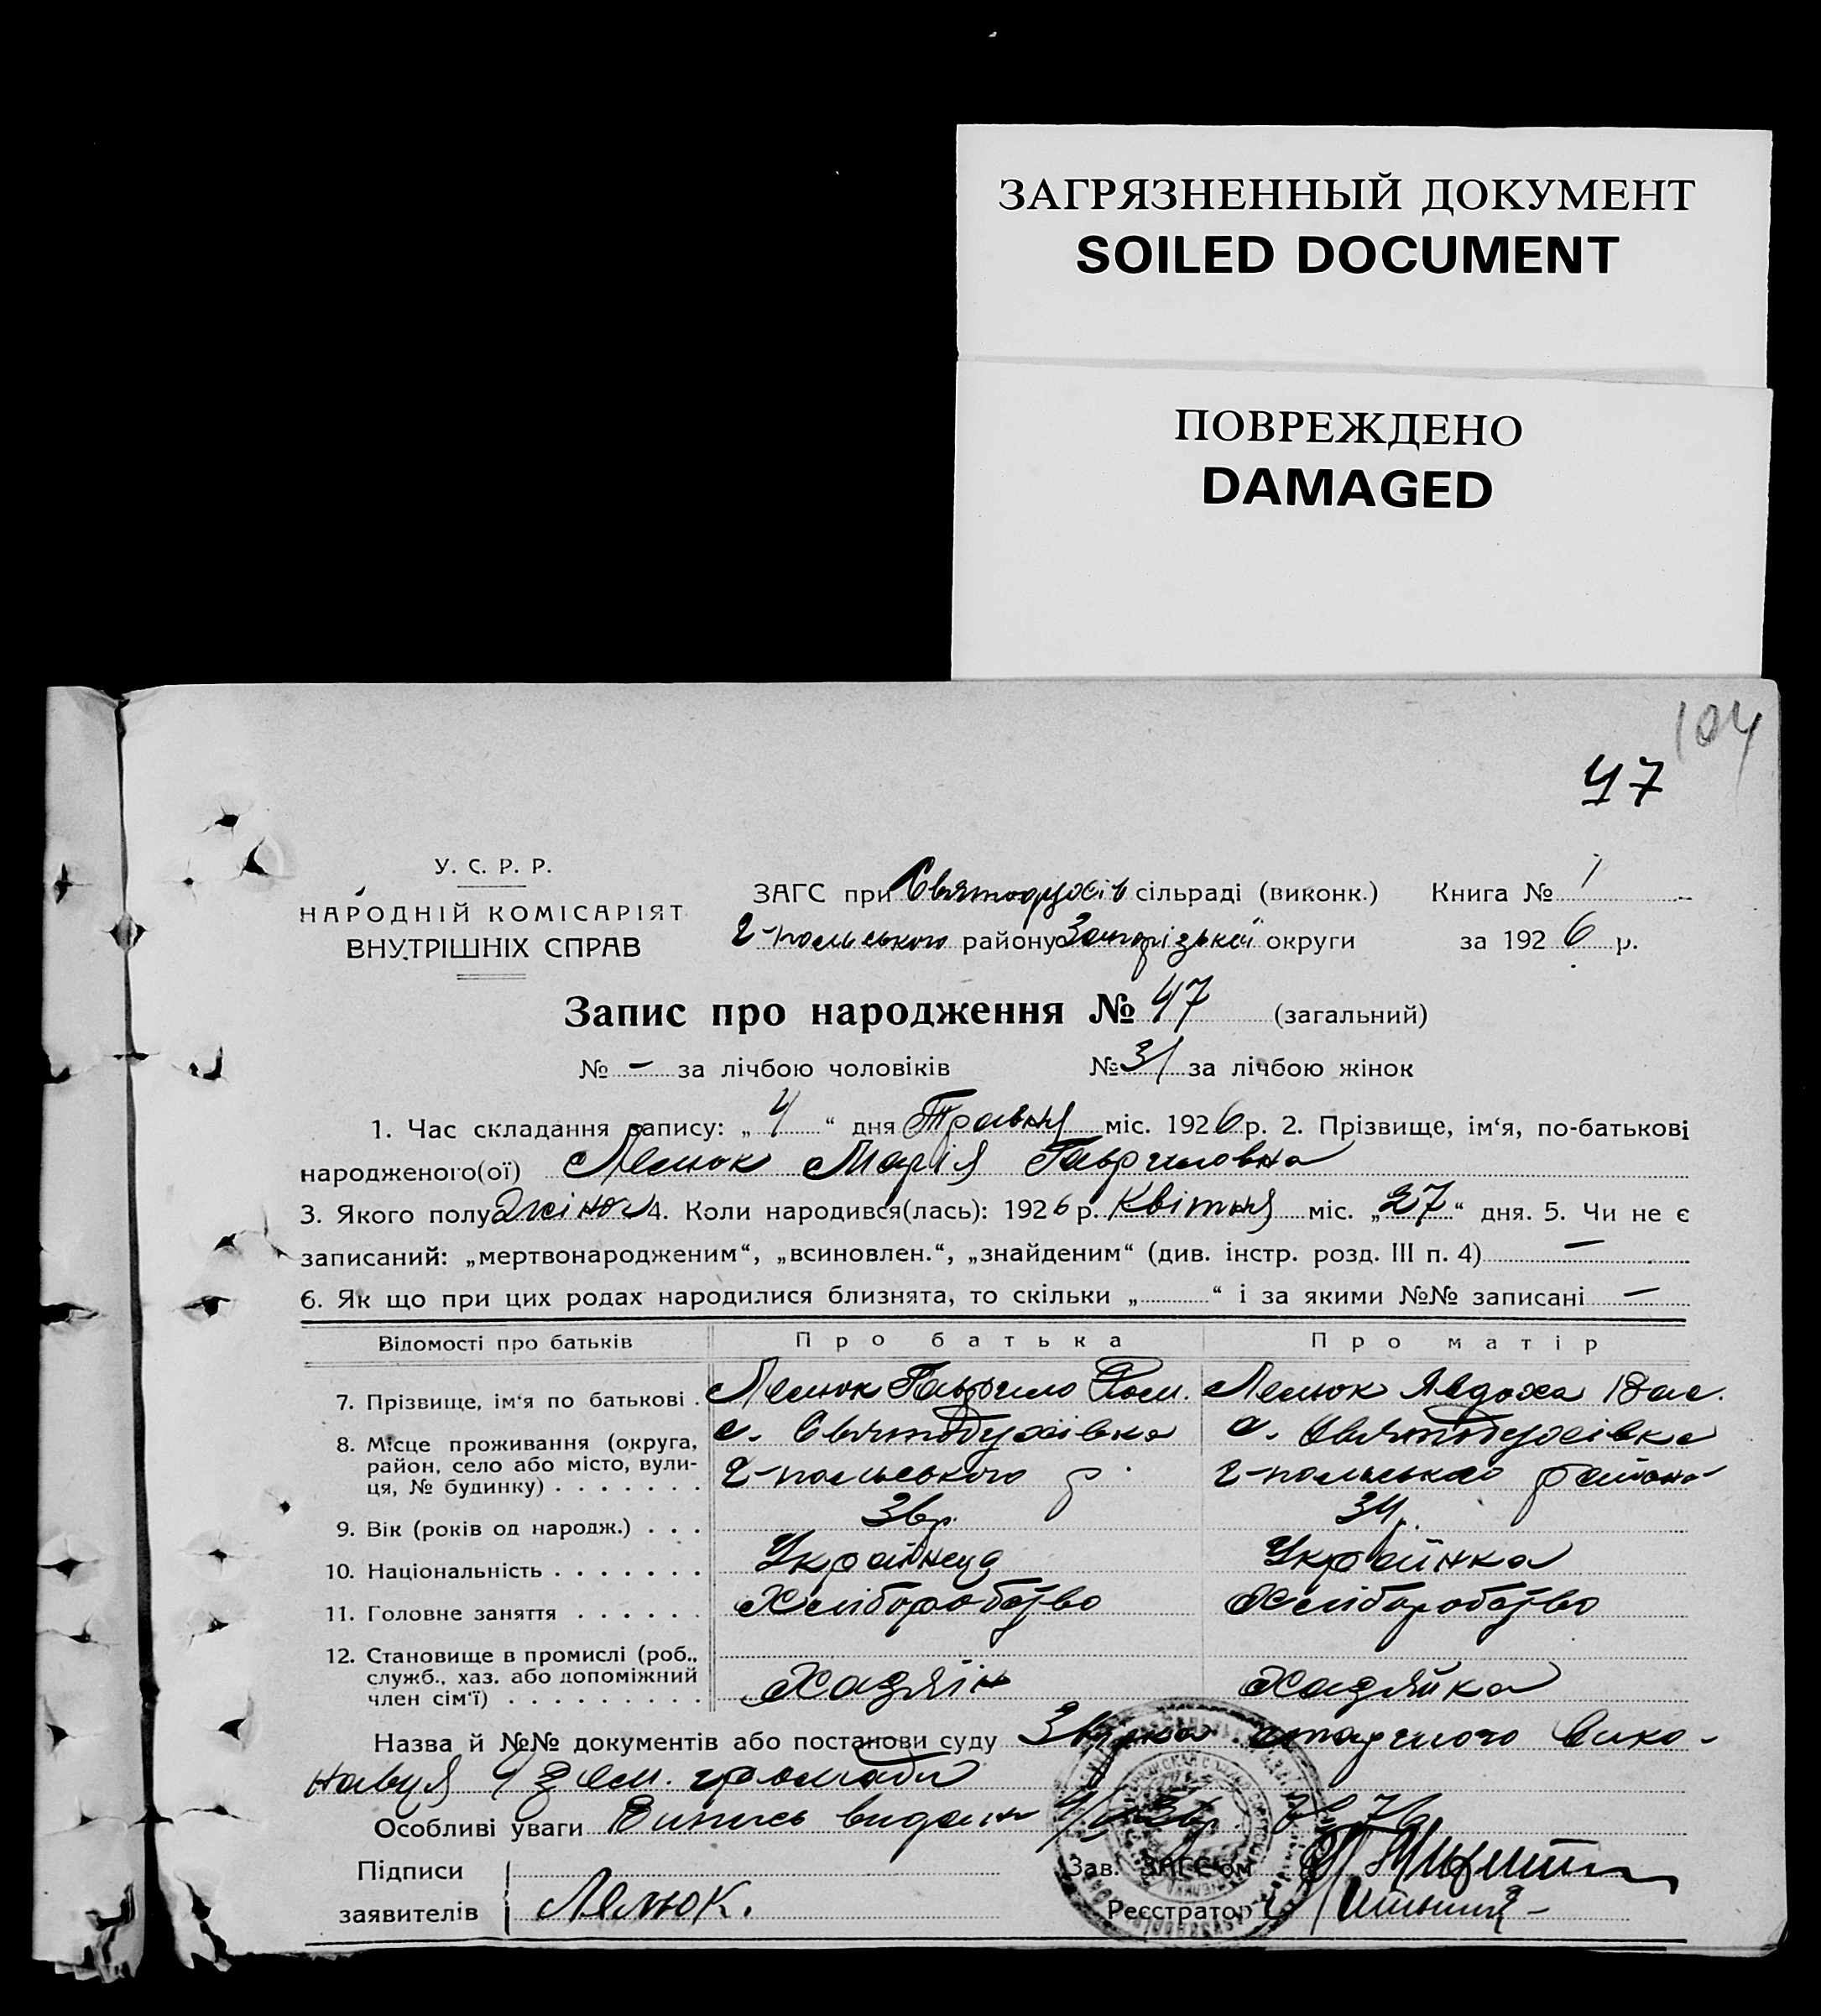 ЗАГРЯЗНЕННЫЙ ДОКУМЕНТ
SOILED DOCUMENT
ПОВРЕЖДЕНО
DAMAGED
104
47
У. С. Р. Р.
НАРОДНІЙ КОМІСАРІЯТ
ВНУТРІШНІХ СПРАВ
ЗАГС при Святодухів сільраді (виконк.) Книга № 1
2-польського району Запорізької округи за 1926 р.
Запис про народження № 47 (загальний)
№ — за лічбою чоловіків № 31 за лічбою жінок
1. Час складання запису: „ 4 “ дня Травня міс. 1926 р. 2. Прізвище, ім‘я, по-батькові
народженого(ої) Лелюк Марія Гавриловна
3. Якого полу жіноч 4. Коли народився(лась): 1926 р. Квітня міс. „27“ дня. 5. Чи не є
записаний: „мертвонародженим“, „всиновлен.“, „знайденим“ (див. інстр. розд. III п. 4) —
6. Як що при цих родах народилися близнята, то скільки „ “ і за якими №№ записані —
Відомості про батьків Про батька Про матір
7. Прізвище, ім‘я по батькові . Лелюк Гаврило Лелюк Явдоха
8. Місце проживання (округа, с. Святодухівка с. Святодухівка
район, село або місто, вули-
ця, № будинку) . . . . . . . 2-польського р. 2-польського района
9. Вік (років од народж.) . . . 36 р. 34 р.
10. Національність . . . . . . . Українець Українка
11. Головне заняття . . . . . . Хліборобство Хліборобство
12. Становище в промислі (роб.,
служб., хаз. або допоміжний
член сім‘ї) . . . . . . . . . Хазяїн Хазяйка
Назва й №№ документів або постанови суду вико-
навця 4 зем. громади
Особливі уваги Випись видан
Підписи Зав. ЗАГС‘ом
заявителів Лелюк. Реєстратор